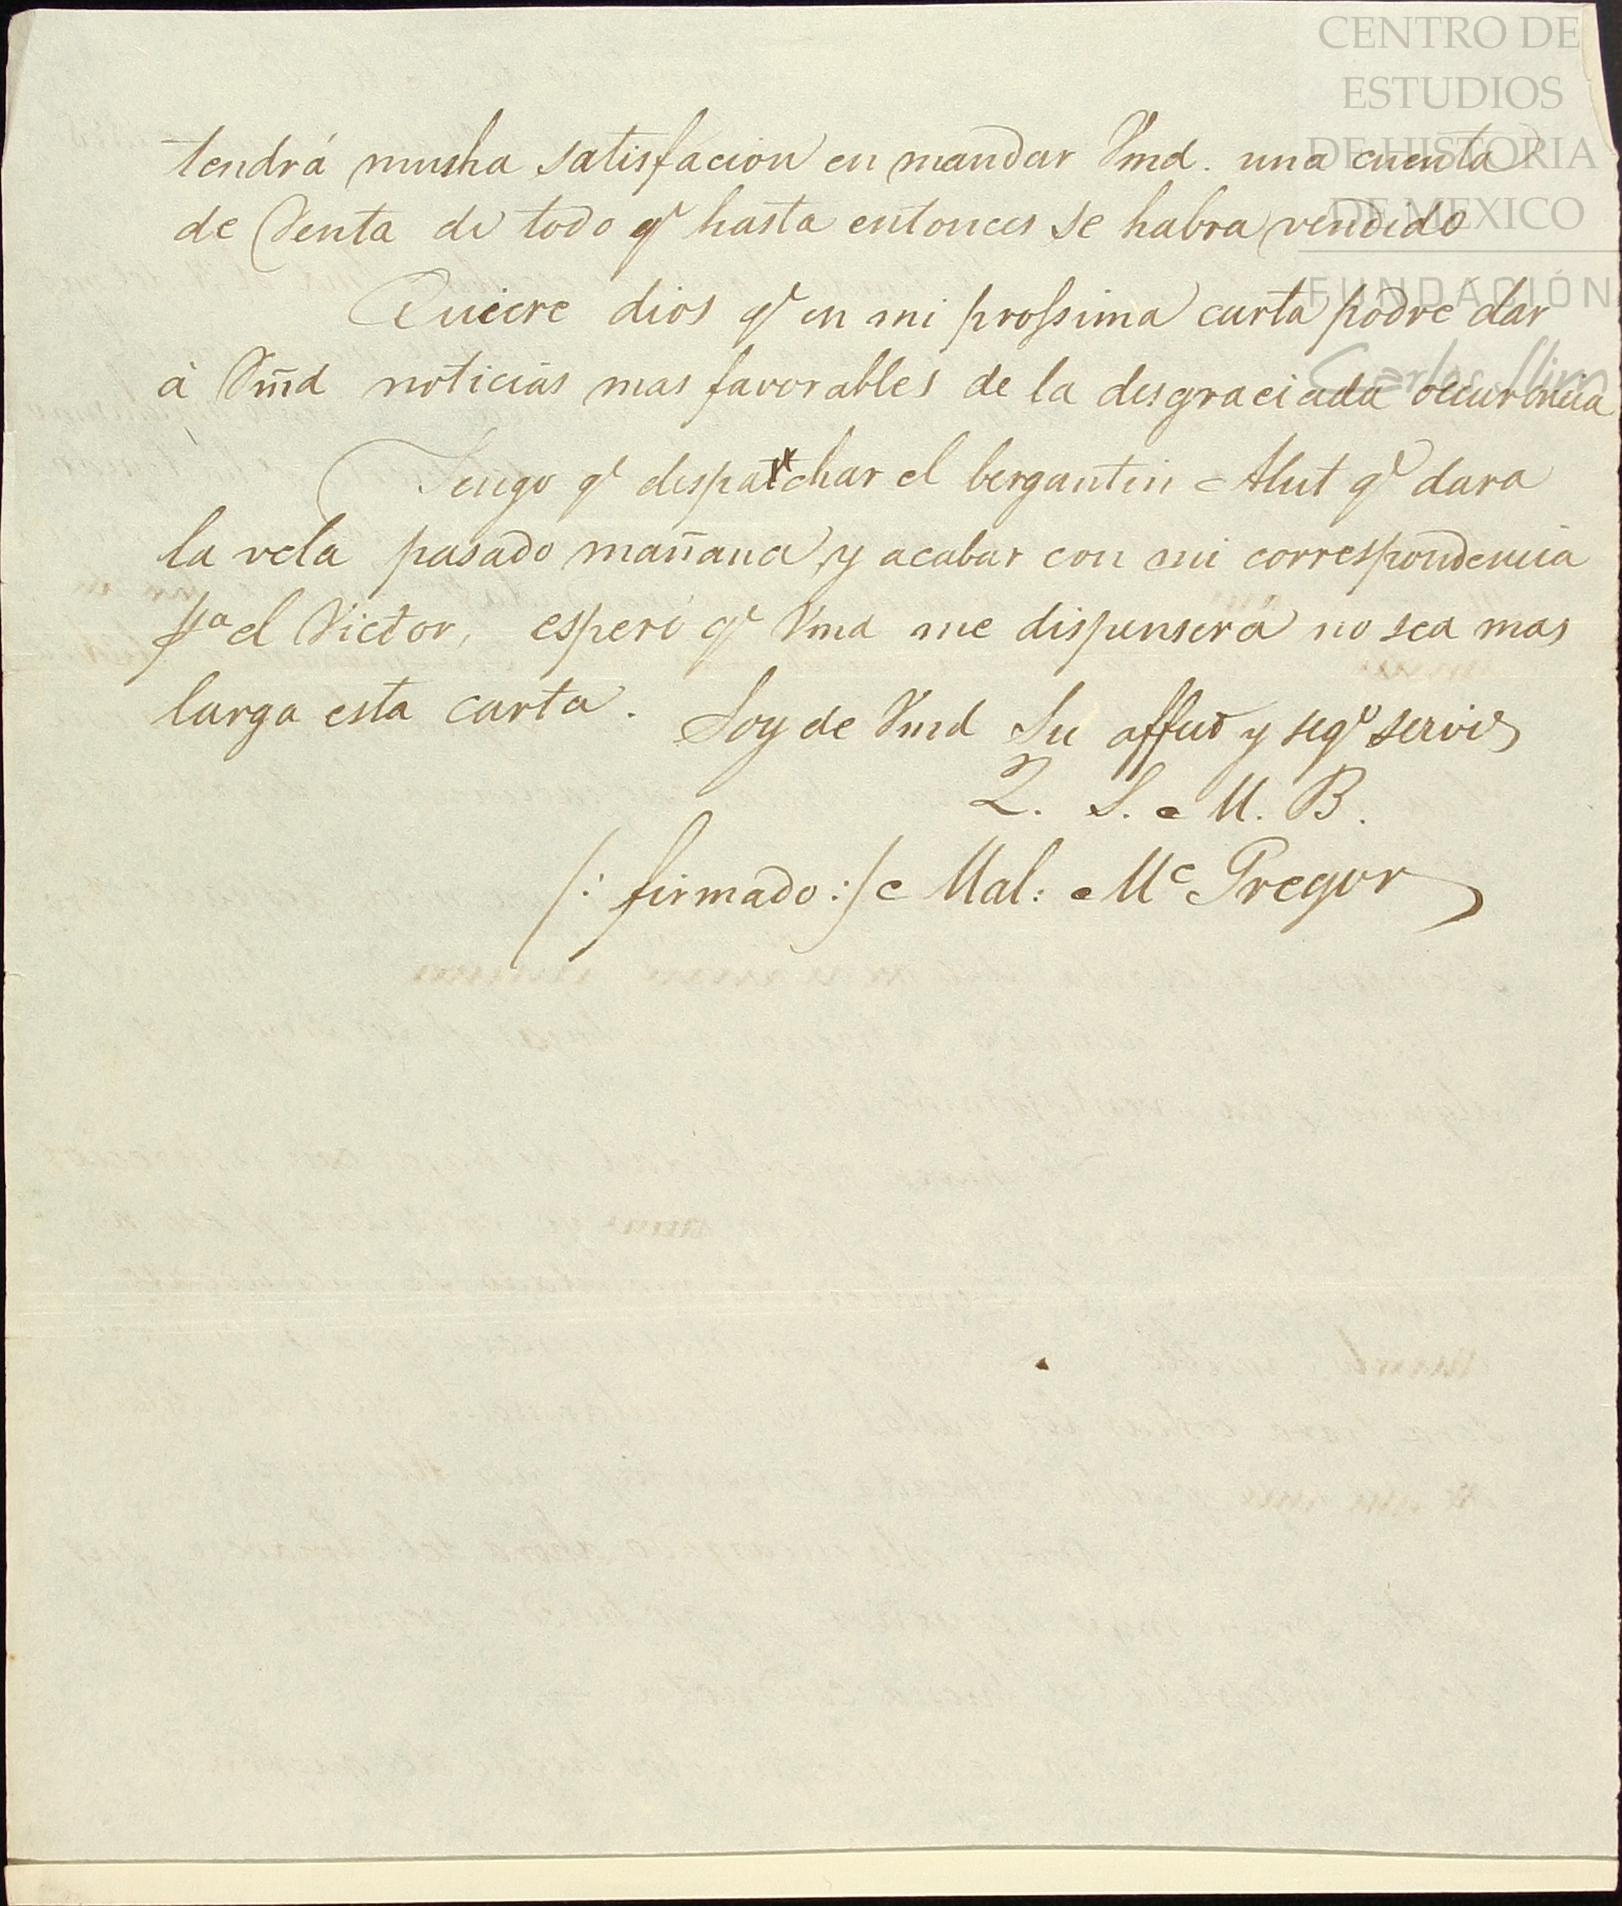 CENTRO DE
ESTUDIOS
DE HISTORIA
DE MEXICO
FUNDACIÓN
Carlos Slim
tendrá musha satisfacion en mandar Vmd. una cuenta
de Venta de todo qe hasta entonces se habra vendido
Quiere dios qe en mi prossima carta podre dar
à Vm̃d noticias mas favorables de la desgraciada occurencia
Tengo qe despatchar el bergantin qe dara
la vela pasado mañana, y acabar con mi correspondencia
pa el Victor, espero qe Vmd me dispensera no sea mas
larga esta carta. Soy de Vmd Su affmo y sego servir
Q. S. M. B.
/: firmado :/ Mal: Mc Gregor